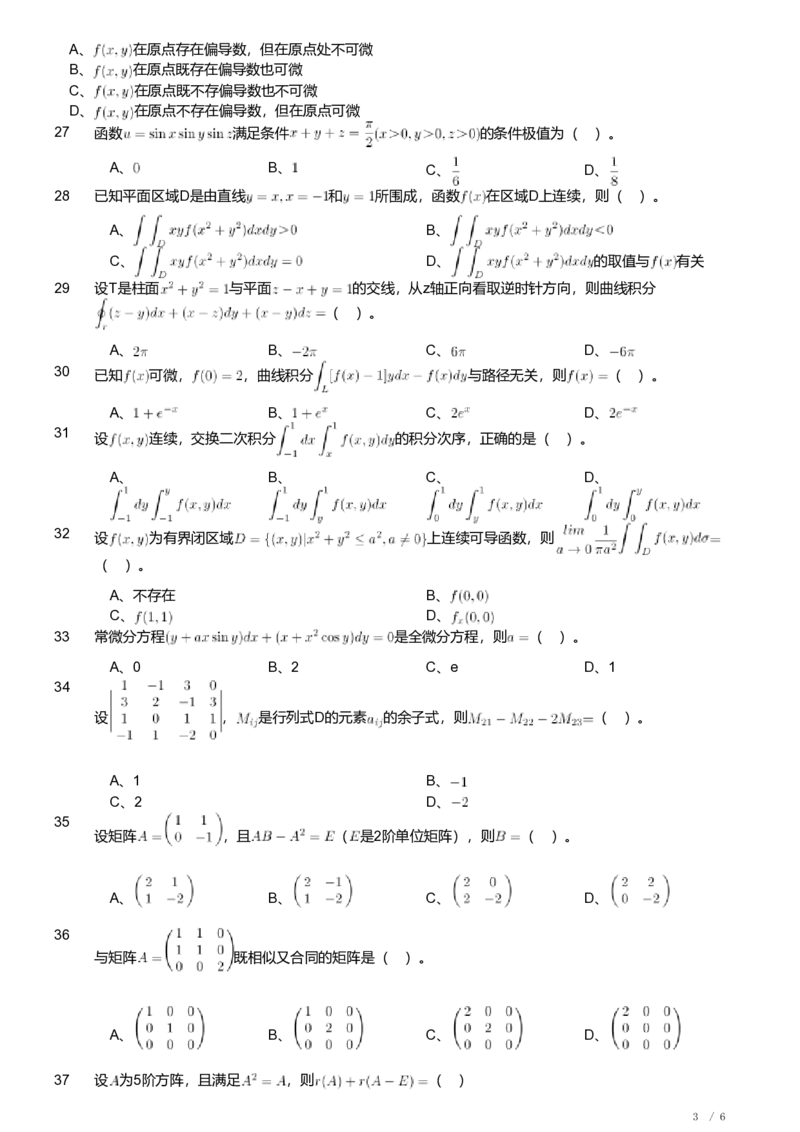 A、f(x,y)在原点存在偏导数，但在原点处不可微
B、f(x,y)在原点既存在偏导数也可微
C、f(x,y)在原点既不存偏导数也不可微
D、f(x,y)在原点不存在偏导数，但在原点可微
27 函数u = sin x sin y sin z满足条件x + y + z = π/2 (x>0, y>0, z>0)的条件极值为（ ）。
A、0 B、1 C、1/6 D、1/8
28 已知平面区域D是由直线y = x, x = −1和y = 1所围成，函数f(x)在区域D上连续，则（ ）。
A、∫∫_D xyf(x²+y²)dxdy>0 B、∫∫_D xyf(x²+y²)dxdy<0
C、∫∫_D xyf(x²+y²)dxdy = 0 D、∫∫_D xyf(x²+y²)dxdy的取值与f(x)有关
29 设T是柱面x²+y² = 1与平面z − x + y = 1的交线，从z轴正向看取逆时针方向，则曲线积分
∮_r (z − y)dx + (x − z)dy + (x − y)dz =（ ）。
A、2π B、−2π C、6π D、−6π
30 已知f(x)可微，f(0) = 2，曲线积分∫_L [f(x) − 1]ydx − f(x)dy与路径无关，则f(x) =（ ）。
A、1 + e^{−x} B、1 + e^x C、2e^x D、2e^{−x}
31 设f(x,y)连续，交换二次积分∫_{−1}^{1} dx ∫_x^1 f(x,y)dy的积分次序，正确的是（ ）。
A、 B、 C、 D、
∫_{−1}^{1} dy ∫_{−1}^{y} f(x,y)dx ∫_{−1}^{1} dy ∫_y^1 f(x,y)dx ∫_0^1 dy ∫_y^1 f(x,y)dx ∫_0^1 dy ∫_0^y f(x,y)dx
32 设f(x,y)为有界闭区域D = {(x,y)|x² + y² ≤ a², a ≠ 0}上连续可导函数，则 lim_{a → 0} 1/(πa²) ∫∫_D f(x,y)dσ=
（ ）。
A、不存在 B、f(0,0)
C、f(1,1) D、f_x(0,0)
33 常微分方程(y + ax sin y)dx + (x + x² cos y)dy = 0是全微分方程，则a =（ ）。
A、0 B、2 C、e D、1
34
1 −1 3 0
3 2 −1 3
设| 1 0 1 1 |，M_{ij}是行列式D的元素a_{ij}的余子式，则M_{21} − M_{22} − 2M_{23}=（ ）。
−1 1 −2 0
A、1 B、−1
C、2 D、−2
35
设矩阵A = (1 1; 0 −1)，且AB − A² = E（E是2阶单位矩阵），则B =（ ）。
A、(2 1; 1 −2) B、(2 −1; 1 −2) C、(2 0; 2 −2) D、(2 2; 0 −2)
36
与矩阵A = (1 1 0; 1 1 0; 0 0 2)既相似又合同的矩阵是（ ）。
A、(1 0 0; 0 1 0; 0 0 0) B、(1 0 0; 0 2 0; 0 0 0) C、(2 0 0; 0 2 0; 0 0 0) D、(2 0 0; 0 0 0; 0 0 0)
37 设A为5阶方阵，且满足A² = A，则r(A) + r(A − E) =（ ）
3 / 6